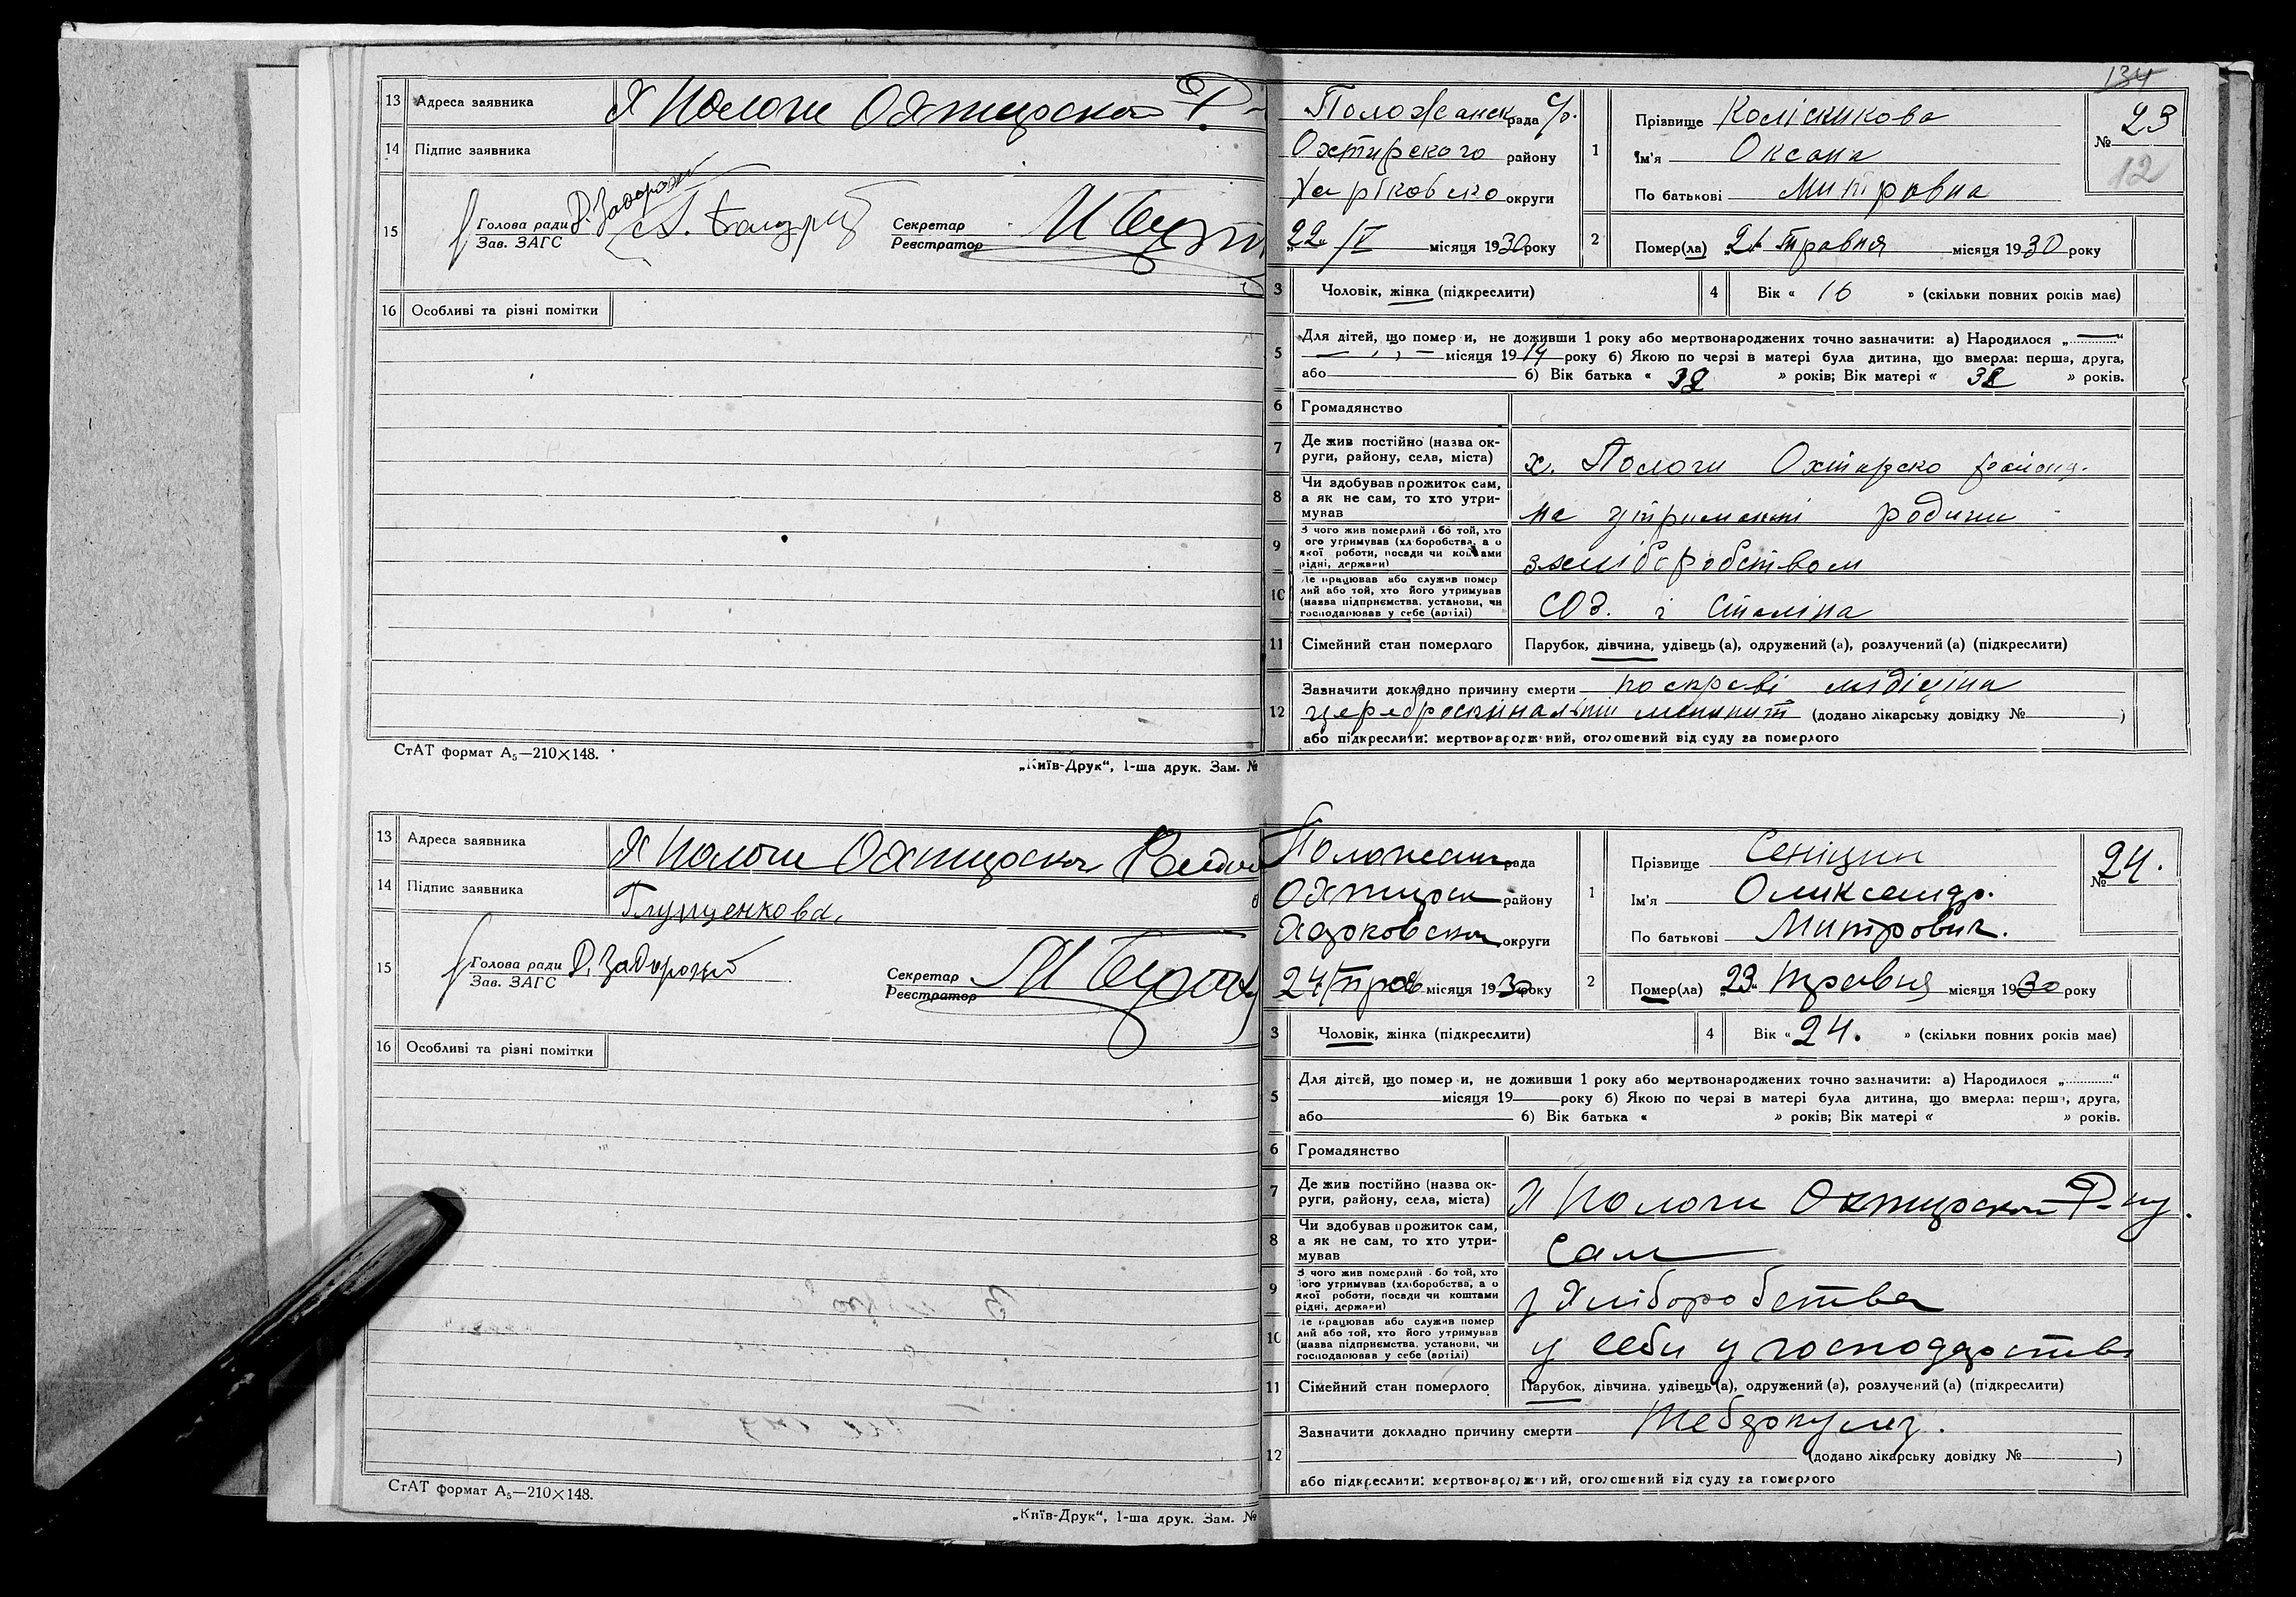 13 Адреса заявника Х Пологи Охтирсько Р-
14 Підпис заявника
15 Голова ради Д. Задорожн
Зав. ЗАГС
Секретар
Реєстратор
16 Особливі та різні помітки
СтАТ формат А₅—210×148.
„Київ-Друк“, 1-ша друк. Зам. №
134
Положанск рада с/р.
Охтирского району
Харковско округи
„22“ /V місяця 1930 року
1 Прізвище Коліснікова
Ім'я Оксана
По батькові Митровна
№ 23
12
2 Помер(ла) „21“ травня місяця 1930 року
3 Чоловік, жінка (підкреслити)
4 Вік « 16 » (скільки повних років має)
5 Для дітей, що помер и, не доживши 1 року або мертвонароджених точно зазначити: а) Народилося „—“
місяця 1914 року б) Якою по черзі в матері була дитина, що вмерла: перша, друга,
або б) Вік батька « 39 » років; Вік матері « 38 » років.
6 Громадянство
7 Де жив постійно (назва ок-
руги, району, села, міста) х. Пологи Охтирско району.
8 Чи здобував прожиток сам,
а як не сам, то хто утри-
мував на утриманні родини
9 З чого жив померлий або той, хто
ого утримував (хліборобства, а о
якої роботи, посади чи коштами
рідні, держави) з хліборобством
10 Де працював або служив помер
лий або той, хто його утримував
(назва підприємства, установи, чи
господарював у себе (артілі) СОЗ. і Сталіна
11 Сімейний стан померлого Парубок, дівчина, удівець (а), одружений (а), розлучений (а) (підкреслити)
12 Зазначити докладно причину смерти по справі медіціна
цереброспінальний менінгіт (додано лікарську довідку № )
або підкреслити: мертвонароджений, оголошений від суду за померлого
13 Адреса заявника Х Пологи Охтирська Район
14 Підпис заявника Глущенкова
15 Голова ради Д. Задорожній
Зав. ЗАГС
Секретар
Реєстратор
16 Особливі та різні помітки
СтАТ формат А₅—210×148.
„Київ-Друк“, 1-ша друк. Зам. №
Положанск рада
Охтирск району
Харковська округи
24/трав місяця 1930 року
1 Прізвище Сеніцин
Ім'я Олександр.
По батькові Митрович.
№ 24.
2 Помер(ла) „23“ травня місяця 1930 року
3 Чоловік, жінка (підкреслити)
4 Вік « 24. » (скільки повних років має)
5 Для дітей, що помер и, не доживши 1 року або мертвонароджених точно зазначити: а) Народилося „“
місяця 19 року б) Якою по черзі в матері була дитина, що вмерла: перша, друга,
або б) Вік батька « » років; Вік матері « » років.
6 Громадянство
7 Де жив постійно (назва ок-
руги, району, села, міста) Х Пологи Охтирськ Р-ну.
8 Чи здобував прожиток сам,
а як не сам, то хто утри-
мував Сам
9 З чого жив померлий або той, хто
його утримував (хліборобства, а о
якої роботи, посади чи коштами
рідні, держави) з Хліборобства
10 Де працював або служив помер
лий або той, хто його утримував
(назва підприємства, установи, чи
господарював у себе (артілі) у себи у господарстві
11 Сімейний стан померлого Парубок, дівчина, удівець (а), одружений (а), розлучений (а) (підкреслити)
12 Зазначити докладно причину смерти Теберкулез.
(додано лікарську довідку № )
або підкреслити: мертвонароджений, оголошений від суду за померлого